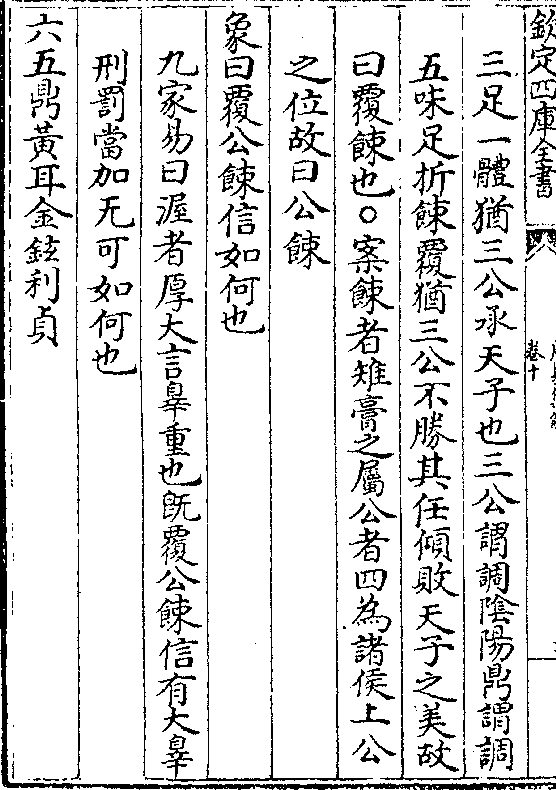 欽定四庫全書
卷十
三足一體猶三公承天子也三公謂調隂陽鼎謂調
五味足折餗覆猶三公不勝其任傾敗天子之美故
曰覆餗也○案餗者雉膏之屬公者四為諸侯上公
之位故曰公餗
象曰覆公餗信如何也
九家易曰渥者厚大言辠重也旣覆公餗信有大辠
刑罰當加无可如何也
六五鼎黃耳金鉉利貞